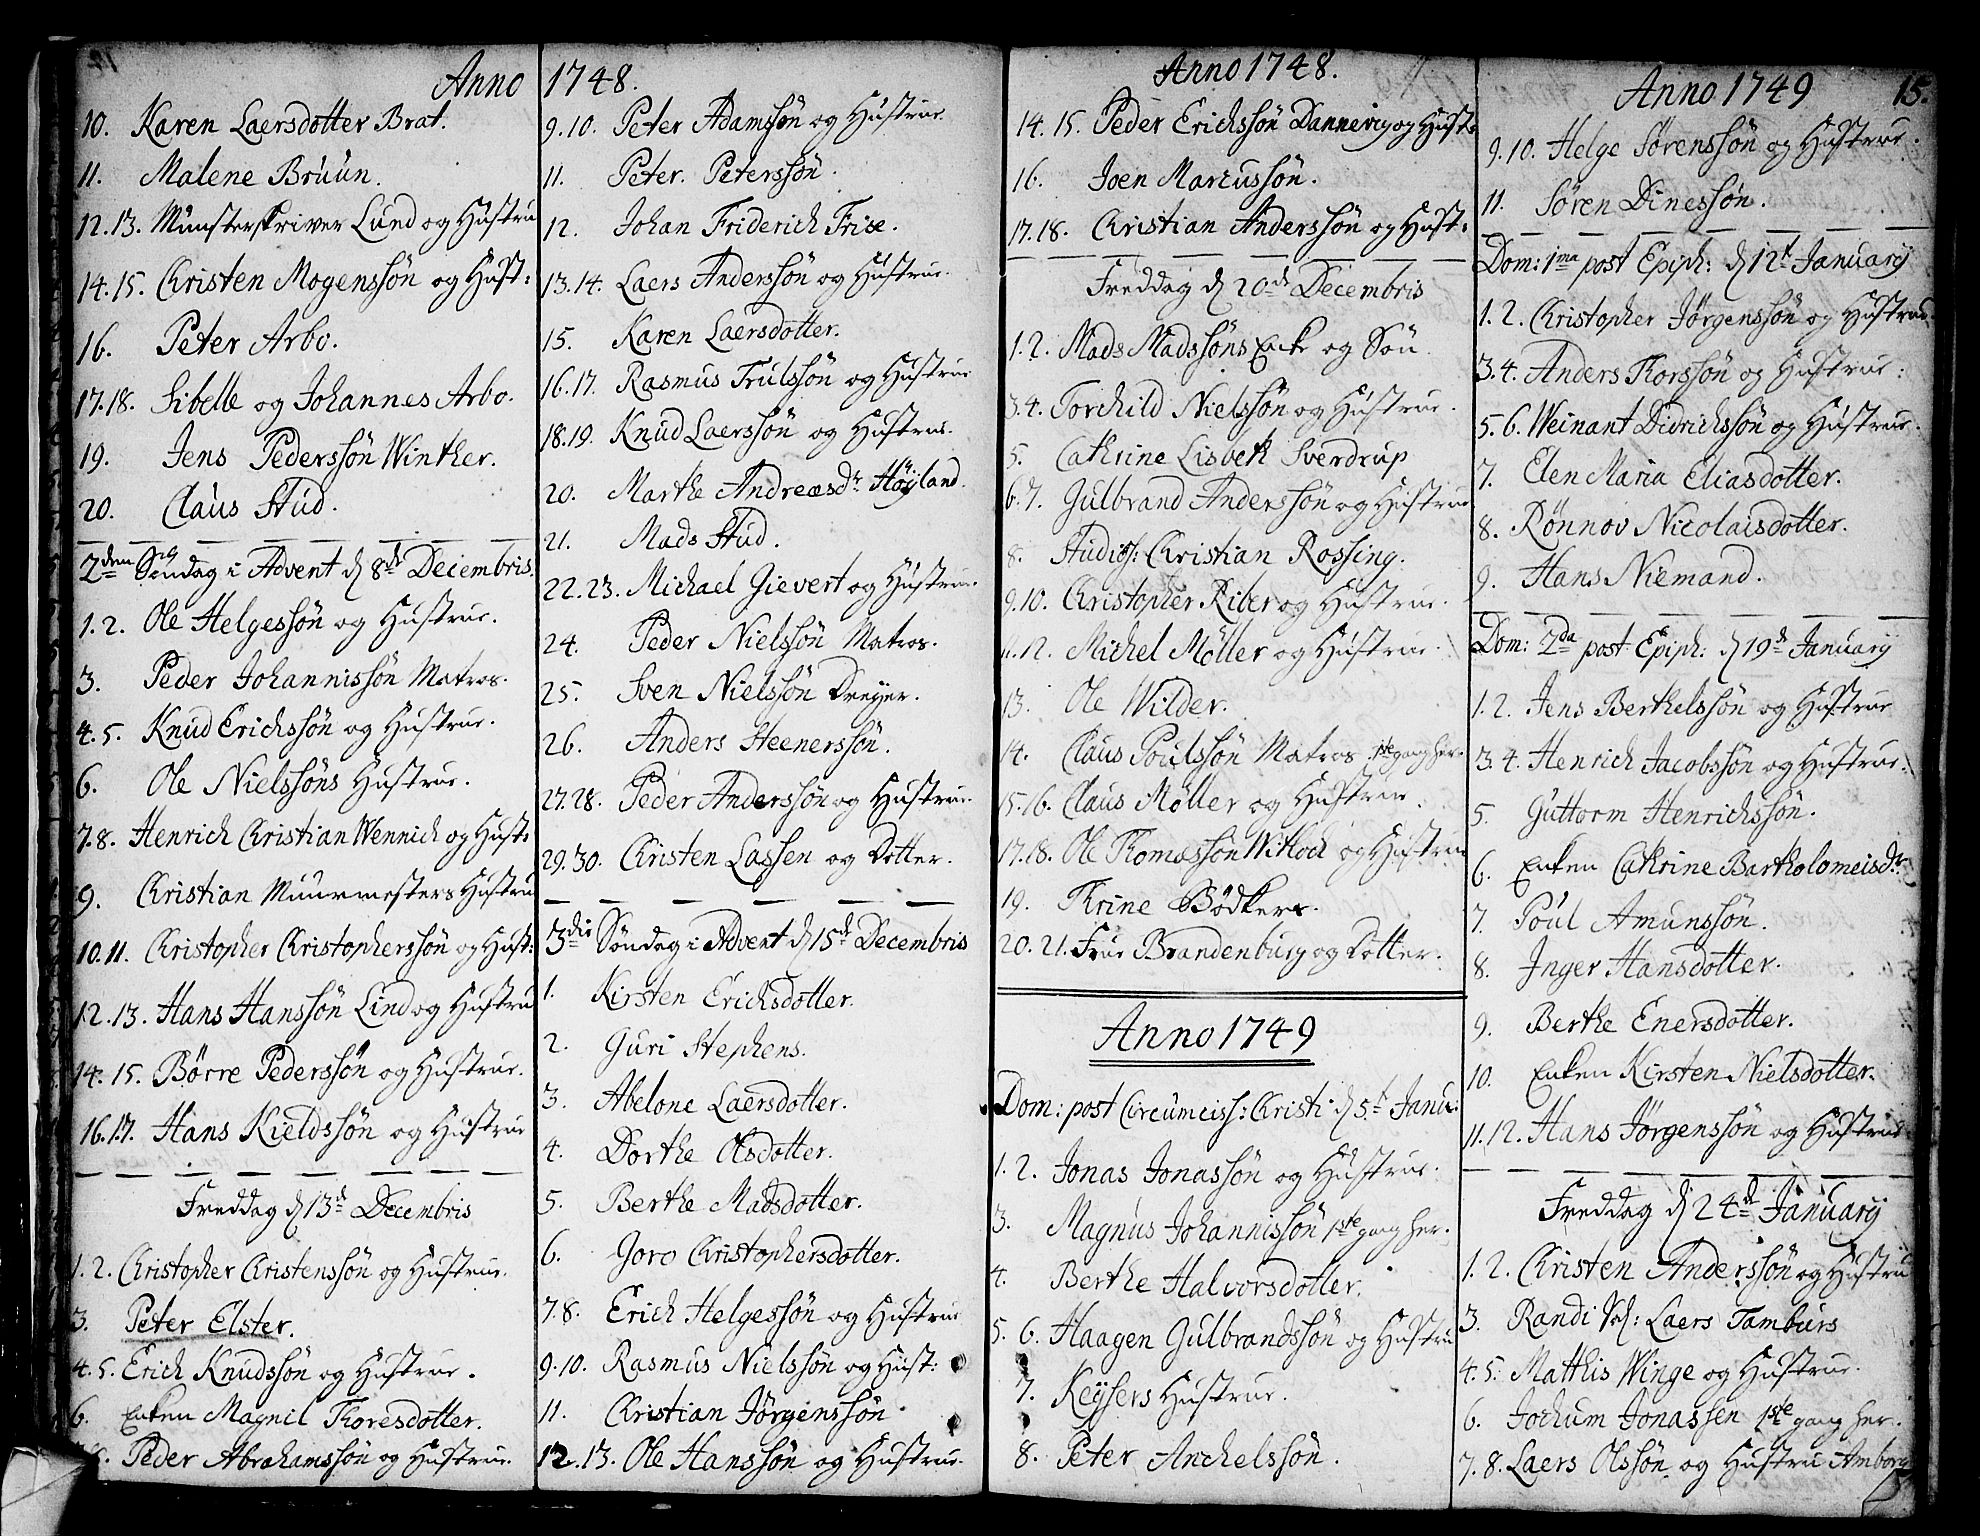 Anno 1748.
10. Karen Laersdotter Brat.
11. Malene Brüün.
12.13. Münsterskriver Lund og Hustru
14.15. Christen Mogenssön og Hust:
16. Peter Arbo.
17.18. Sibelle og Johannes Arbo.
19. Jens Pederssön Winther.
20. Claüs Stüd.
2den Söndag i Advent d 8de Decembris.
1.2. Ole Helgessön og Hustrue.
3. Peder Johannissön Matros.
4.5. Knüd Erichssön og Hustrue.
6. Ole Nielssöns Hustrue.
7.8. Henrich Christian Wennich og Hust:
9. Christian Muurmesters Hustru
10.11. Christopher Christopherssön og Hust:
12.13. Hans Hanssön Lind og Hustru
14.15. Börre Pederssön og Hustrue.
16.17. Hans Kieldssön og Hustrue
Freddag d 13de Decembris
1.2. Christopher Christenssön og Hustrue.
3. Peter Elster.
4.5. Erich Knüdssön og Hustrue.
6. Enken Magnil Thoresdotter.
7.8. Peder Abrahamssön og Hustrue.
9.10. Peter Adamssön og Hüstrue
11. Peter Peterssön.
12. Johan Friderich Frise.
13.14. Laers Anderssön og Hüstrue.
15. Karen Laersdotter.
16.17. Rasmus Trulssön og Hustrue
18.19. Knüd Laerssön og Hustrue.
20. Marthe Andreæsdr Höyland.
21. Mads Stüd.
22.23. Michael Gievert og Hüstrue.
24. Peder Nielssön Matros.
25. Sven Nielssön Dreyer.
26. Anders Steenerssön.
27.28. Peder Anderssön og Hustrue.
29.30. Christen Lassen og Dotter.
3die Söndag i Advent d 15de Decembris
1. Kirsten Erichsdotter.
2. Guri Stephens.
3. Abelone Laersdotter.
4. Dorthe Olsdotter.
5. Berthe Madsdotter.
6. Joro Christophersdotter.
7.8. Erich Helgessön og Hustrue
9.10. Rasmus Nielssön og Hust:
11. Christian Jörgenssön
12.13. Ole Hanssön og Hustrue.
Anno 1748.
14.15. Peder Erichssön Dannevig og Hustr
16. Joen Marcussön.
17.18. Christian Anderssön og Hust:
Freddag d 20de Decembris
1.2. Mads Madssöns Enke og Sön.
3.4. Torchild Nielssön og Hüstrue.
5. Cathrine Lisbeth Sverdrup
6.7. Gülbrand Anderssön og Hüstrue
8. Stüdios: Christian Rossing.
9.10. Christopher Riber og Hustrue.
11.12. Michel Möller og Hüstrue.
13. Ole Wilder.
14. Claüs Poülssön Matros 1ste gang her.
15.16. Claüs Möller og Hustrue.
17.18. Ole Thomassön Witlock og Hustrue
19. Thrine Bödkers.
20.21. Frue Brandenburg og Dotter.
Anno 1749
Dom: post Circumciss: Christi d 5te Janu:
1.2. Jonas Jonassön og Hüstrue.
3. Magnüs Johannissön 1ste gang her.
4. Berthe Halvorsdotter.
5.6. Haagen Gülbrandssön og Hustru
7. Keysers Hustrue.
8. Peter Anchelssön.
Anno 1749 15.
9.10. Helge Sörenssön og Hustrue.
11. Sören Dinessön.
Dom: 1ma post Epiph: d 12te Januarij
1.2. Christopher Jörgenssön og Hustrue.
3.4. Anders Thorssön og Hustrue:
5.6. Weinant Didrichssön og Hüstrue.
7. Elen Maria Eliasdotter.
8. Rönnov Nicolaisdotter.
9. Hans Niemand.
Dom: 2da post Epiph: d 19de Januarij
1.2. Jens Berthelssön og Hustrue
3.4. Henrich Jacobssön og Hustrue.
5. Guttorm Henrichssön.
6. Enken Cathrine Bartholomeisdr.
7. Poül Amunssön.
8. Inger Hansdotter.
9. Berthe Enersdotter.
10. Enken Kirsten Nielsdotter.
11.12. Hans Jörgenssön og Hustrue
Freddag d 24de Januarij
1.2. Christen Anderssön og Hustru
3. Randi Laers Tambürs
4.5. Mathis Winge og Hustrue.
6. Jochum Jonassen 1ste gang her.
7.8. Laers Olssön og Hustru Amborg